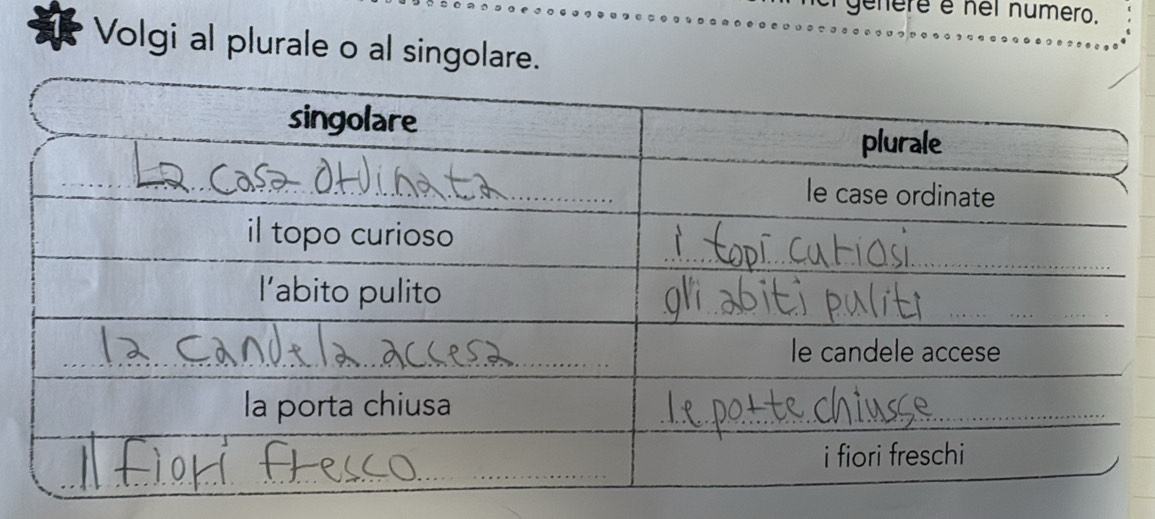 genere e nel numero.
1 Volgi al plurale o al singolare.
singolare plurale
La casa ordinata le case ordinate
il topo curioso i topi curiosi
l'abito pulito gli abiti puliti
la candela accesa le candele accese
la porta chiusa le porte chiusse
Il fiori fresco i fiori freschi